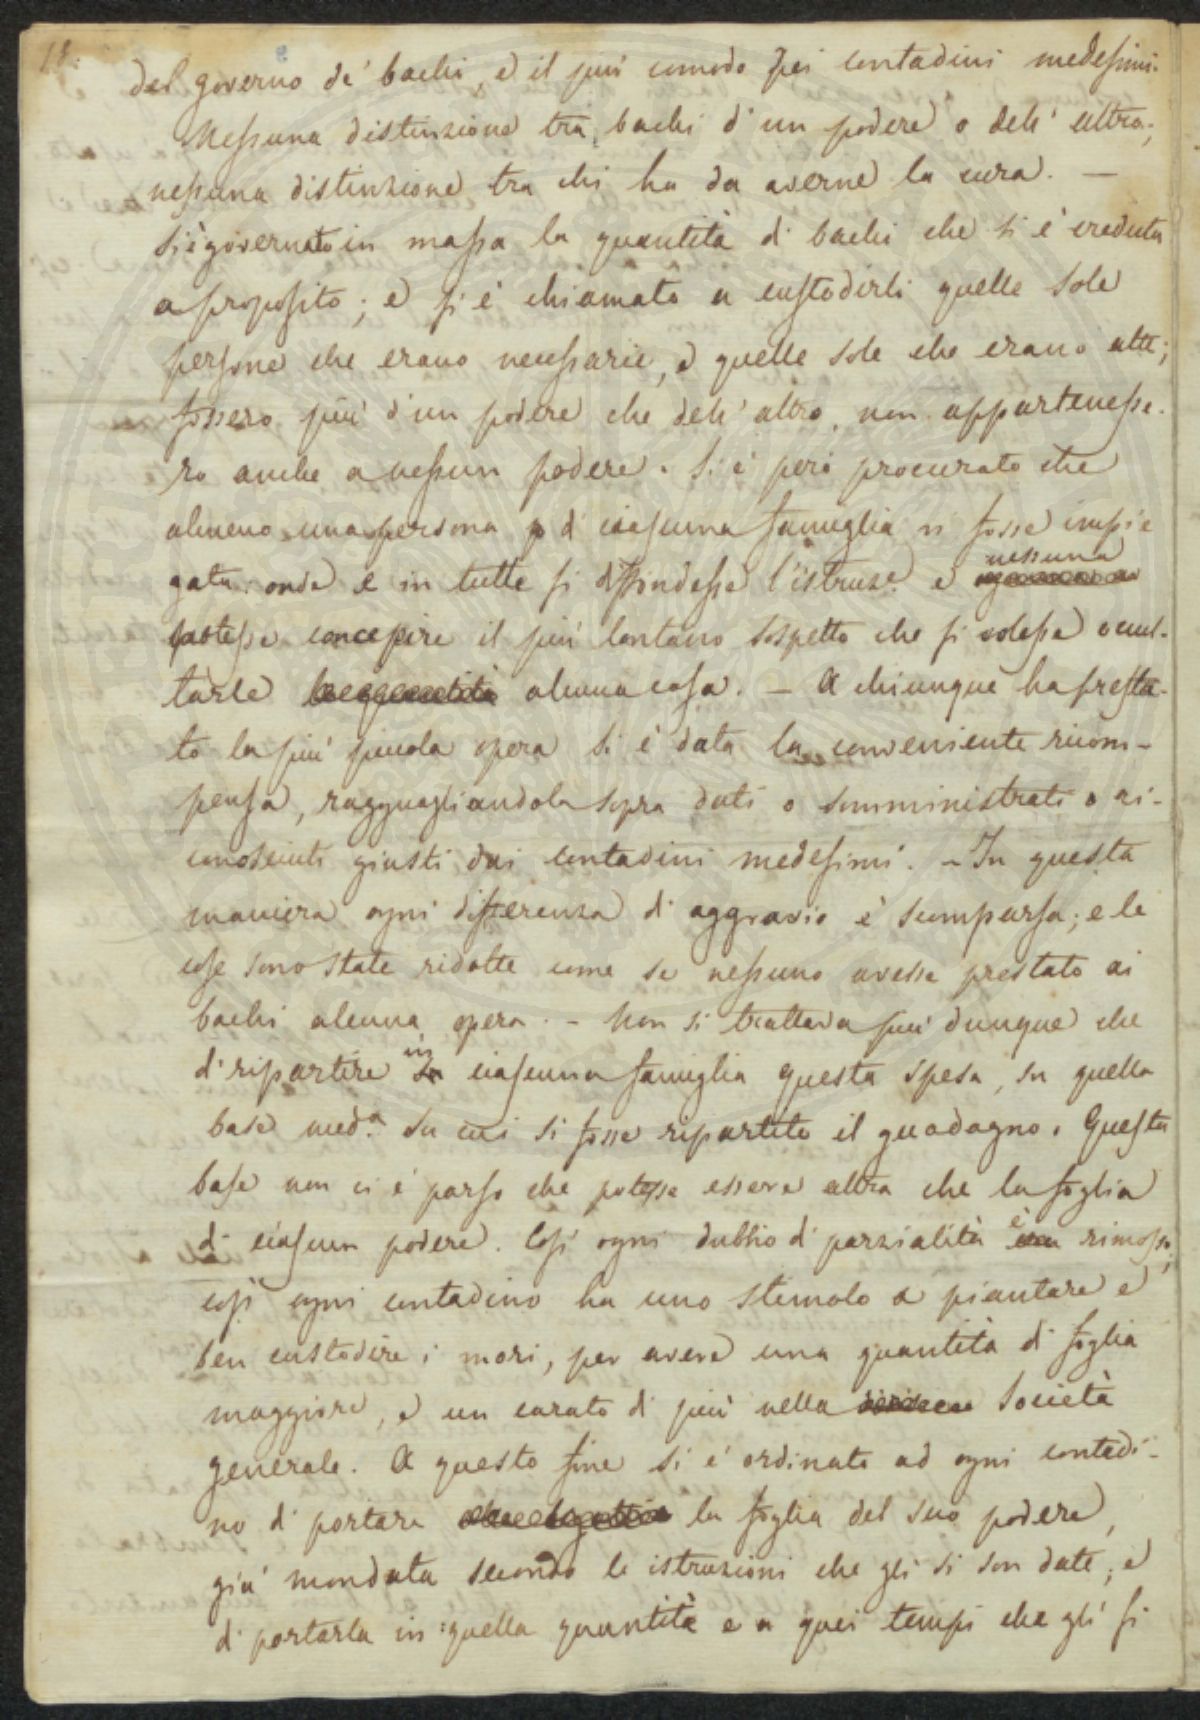 18.
del governo de' bachi, e il più comodo pei contadini medesimi.
Nessuna distinzione tra bachi d'un podere o dell'altro;
nessuna distinzione tra chi ha da averne la cura. —
Si è governato in massa la quantità di bachi che si è creduta
a proposito; e si è chiamato a custodirli quelle sole
persone che erano necessarie, e quelle sole che erano atte;
fossero più d'un podere che dell'altro, non appartenesse-
ro anche a nessun podere. Si è però procurato che
almeno una persona di ciascuna famiglia vi fosse impie
gata: onde e in tutte si diffondesse l'istruz.e e nessuna
potesse concepire il più lontano sospetto che si volesse occul-
tarle alcuna cosa. — A chiunque ha presta-
to la più piccola opera si è data la conveniente ricom-
pensa, ragguagliandola sopra dati o somministrati o ri-
conosciuti giusti dai contadini medesimi. — In questa
maniera ogni differenza di aggravio è scomparsa; e le
cose sono state ridotte come se nessuno avesse prestato ai
bachi alcuna opera. — Non si trattava più dunque che
di ripartire in ciascuna famiglia questa spesa, su quella
base med.a su cui si fosse ripartito il guadagno. Questa
base non ci è parso che potesse essere altra che la foglia
di ciascun podere. Così ogni dubbio di parzialità è rimosso;
così ogni contadino ha uno stimolo a piantare e
ben custodire i mori, per avere una quantità di foglia
maggiore, e un carato di più nella Società
generale. A questo fine si è ordinato ad ogni contadi-
no di portare la foglia del suo podere,
già mondata secondo le istruzioni che gli si son date; e
di portarla in quella quantità e a quei tempi che gli si